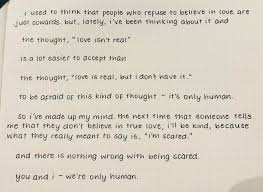 i used to think that people who refuse to believe in love are
just cowards. but, lately, i've been thinking about it and
the thought, "love isn't real"
is a lot easier to accept than
the thought, "love is real, but i don't have it."
to be afraid of this kind of thought - it's only human.
so i've made up my mind. the next time that someone tells
me that they don't believe in true love, i'll be kind, because
what they really meant to say is, "i'm scared."
and there is nothing wrong with being scared.
you and i - we're only human.